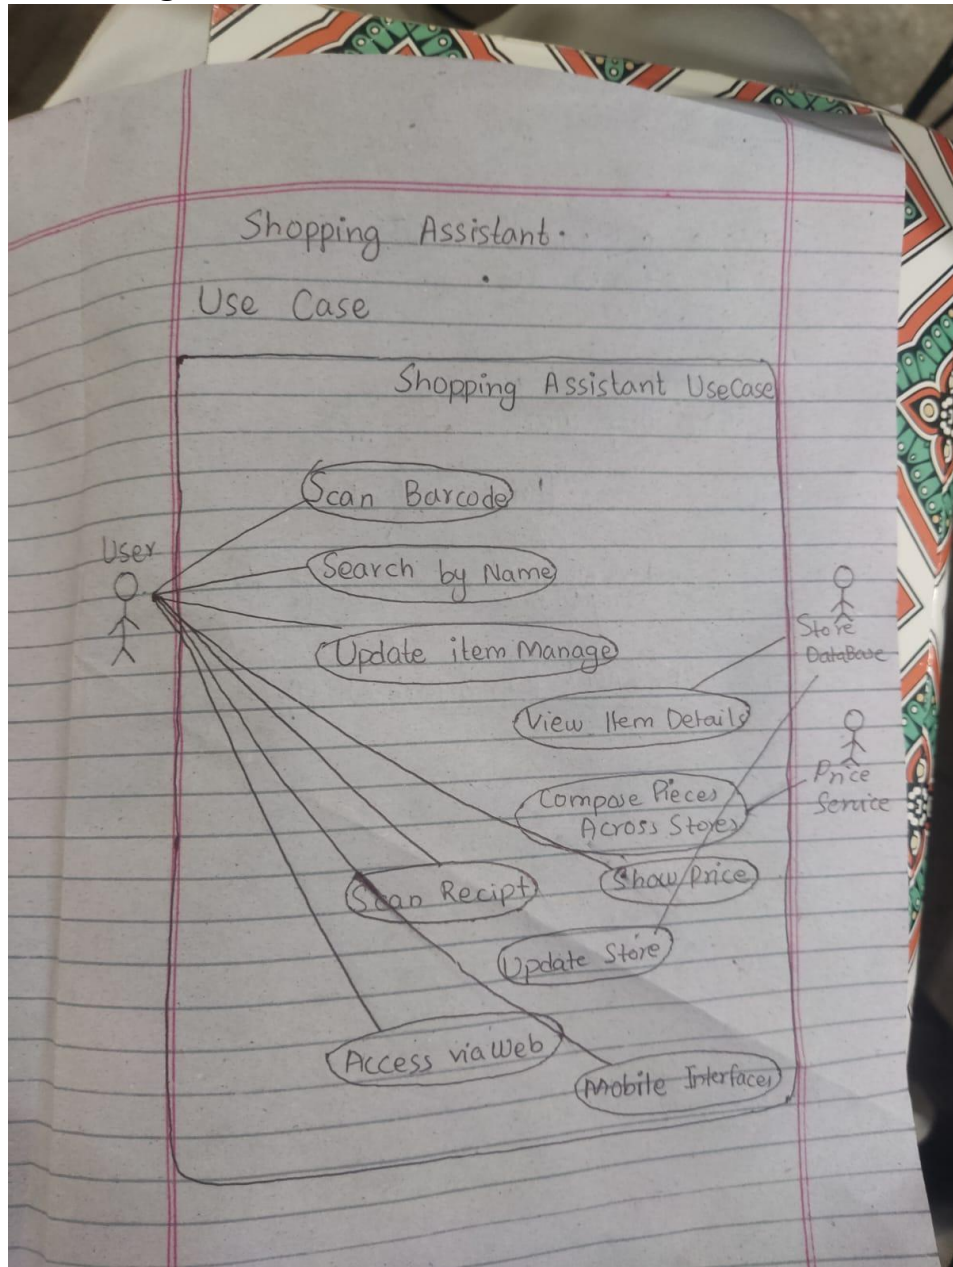 Shopping Assistant.
Use Case
Shopping Assistant UseCase
Scan Barcode
User
Search by Name
Update item Manage
Store
DataBase
View Item Details
Price
Service
Compose Pieces
Across Stores
Show Price
Scan Recipt
Update Store
Access via Web
Mobile Interfaces